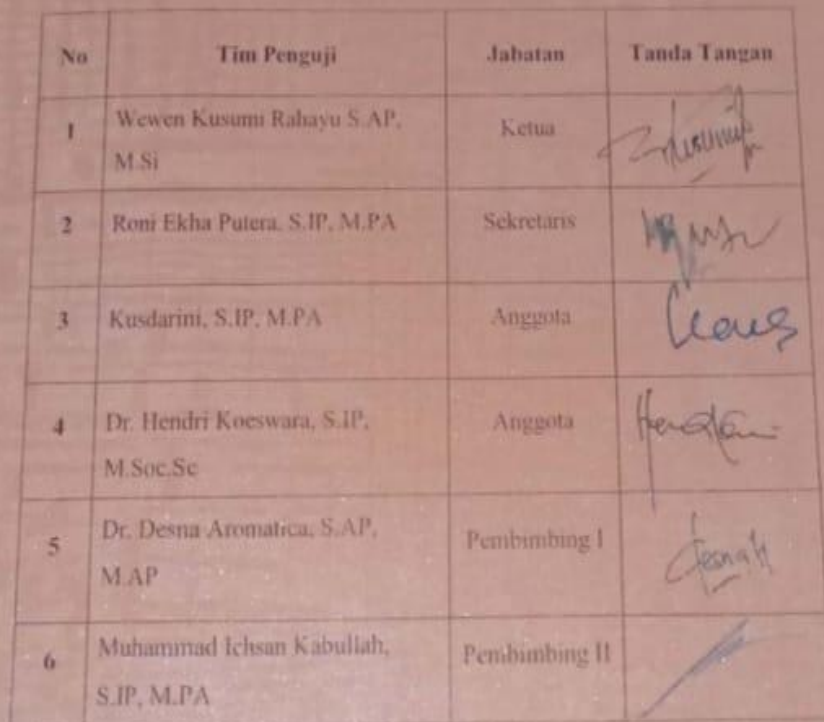 No Tim Penguji Jabatan Tanda Tangan
1 Wewen Kusumi Rahayu S.AP, Ketua
M.Si
2 Roni Ekha Putera, S.IP, M.PA Sekretaris
3 Kusdarini, S.IP, M.PA Anggota
4 Dr. Hendri Koeswara, S.IP, Anggota
M.Soc.Sc
5 Dr. Desna Aromatica, S.AP, Pembimbing I
M.AP
6 Muhammad Ichsan Kabullah, Pembimbing II
S.IP, M.PA